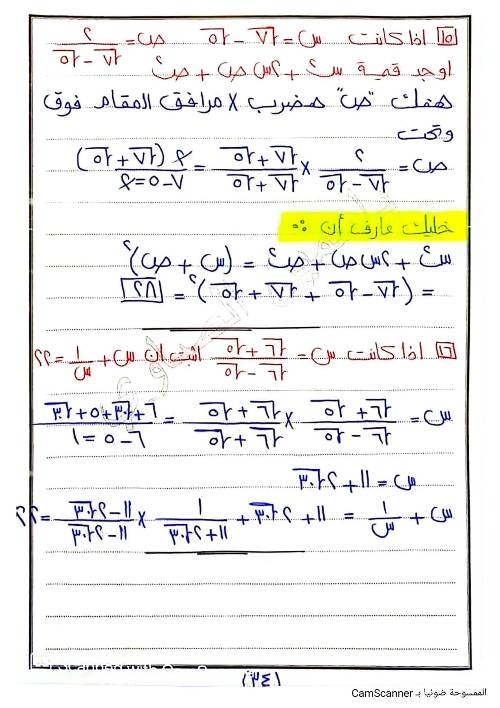 ١٥ اذا كانت س = √٧ - √٥ ص = ٢ / (√٧ - √٥)
اوجد قيمة س² + ٢س ص + ص²
هفك "ص" هضرب × مرافق المقام فوق
وتحت
ص = ٢ / (√٧ - √٥) × (√٧ + √٥) / (√٧ + √٥) = ٢ (√٧ + √٥) / ٧ - ٥ = ٢
خليك عارف أن ∴
س² + ٢س ص + ص² = (س + ص)²
= (√٧ - √٥ + √٧ + √٥)² = ٢٨
١٦ اذا كانت س = (√٦ + √٥) / (√٦ - √٥) اثبت ان س + ١/س = ٢٢
س = (√٦ + √٥) / (√٦ - √٥) × (√٦ + √٥) / (√٦ + √٥) = ٦ + √٣٠ + ٥ + √٣٠ / ٦ - ٥ = ١
س = ١١ + ٢√٣٠
س + ١/س = ١١ + ٢√٣٠ + ١ / (١١ + ٢√٣٠) × (١١ - ٢√٣٠) / (١١ - ٢√٣٠) = ٢٢
(٣٤)
الممسوحة ضوئيا بـ CamScanner